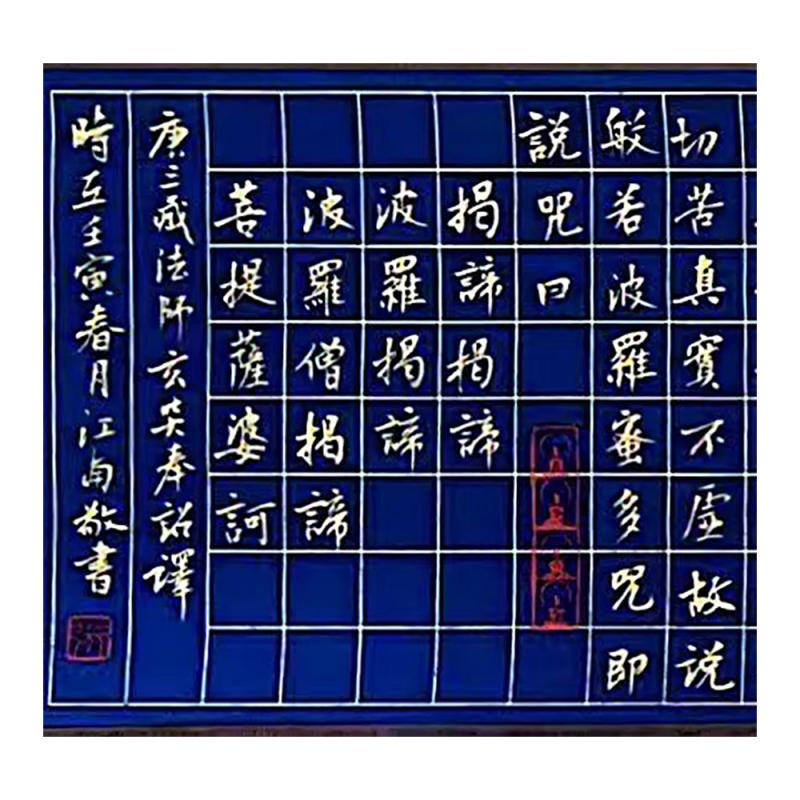 切苦真實不虛故說
般若波羅蜜多咒即
說咒曰
揭諦揭諦
波羅揭諦
波羅僧揭諦
菩提薩婆訶
唐三藏法師玄奘奉詔譯
時在壬寅春月江南敬書